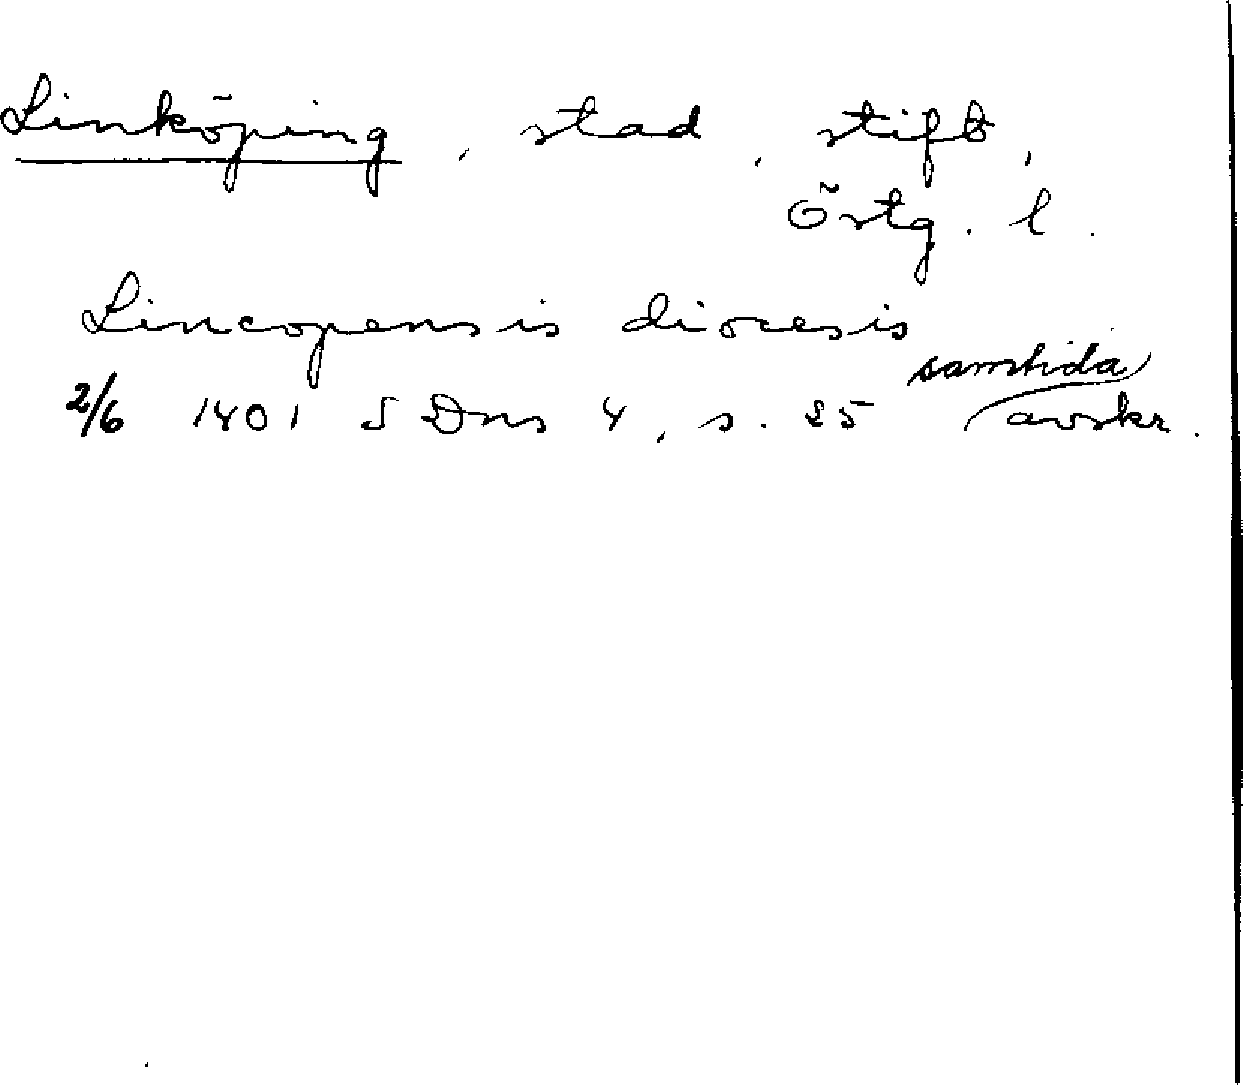 Linköping, stad, stift,
Östg. l.
Lincopensis diocesis
samtida
2/6 1401 SDns 4, s. 25 avskr.